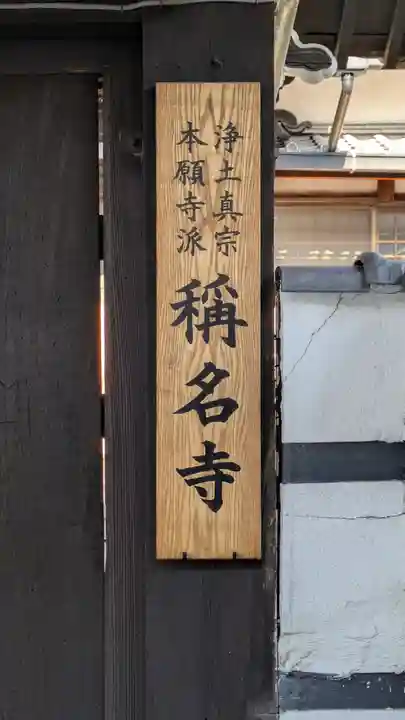 浄土真宗
本願寺派
稱名寺